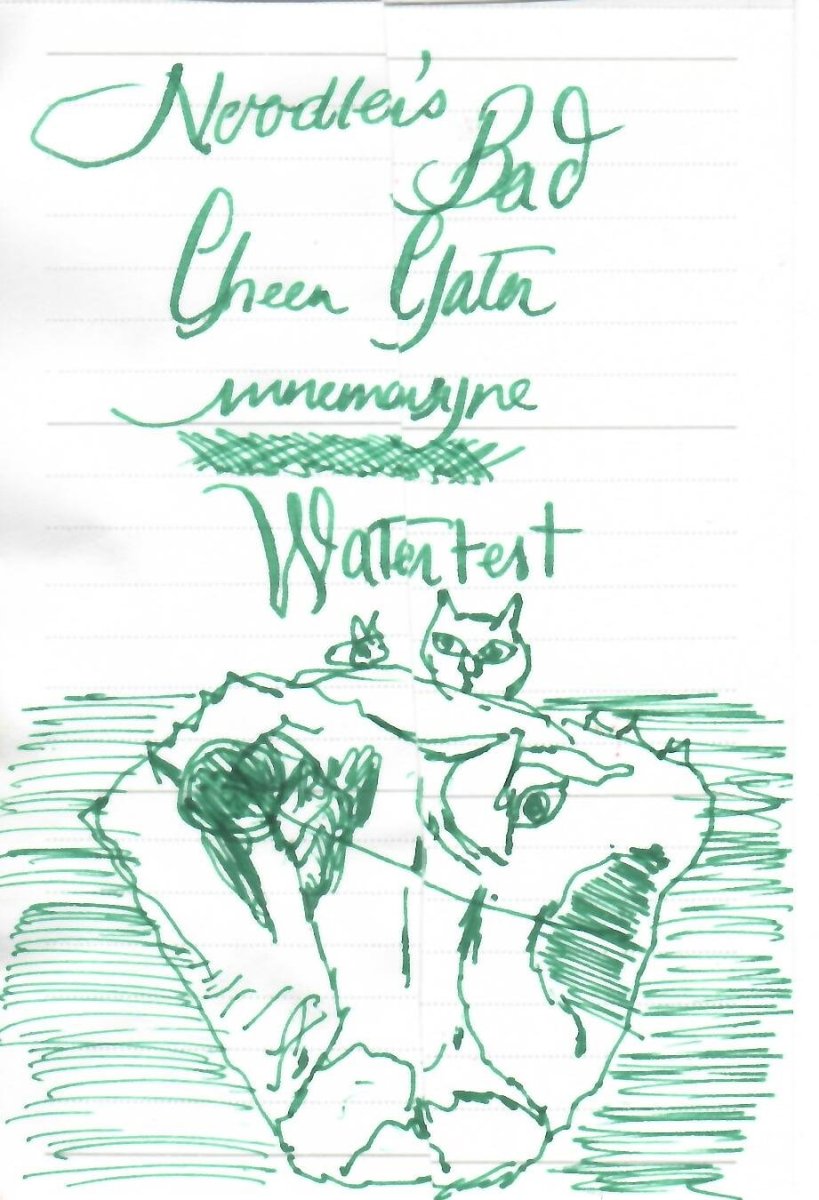 Noodler's Bad
Green Gator
mnemosyne
Water test